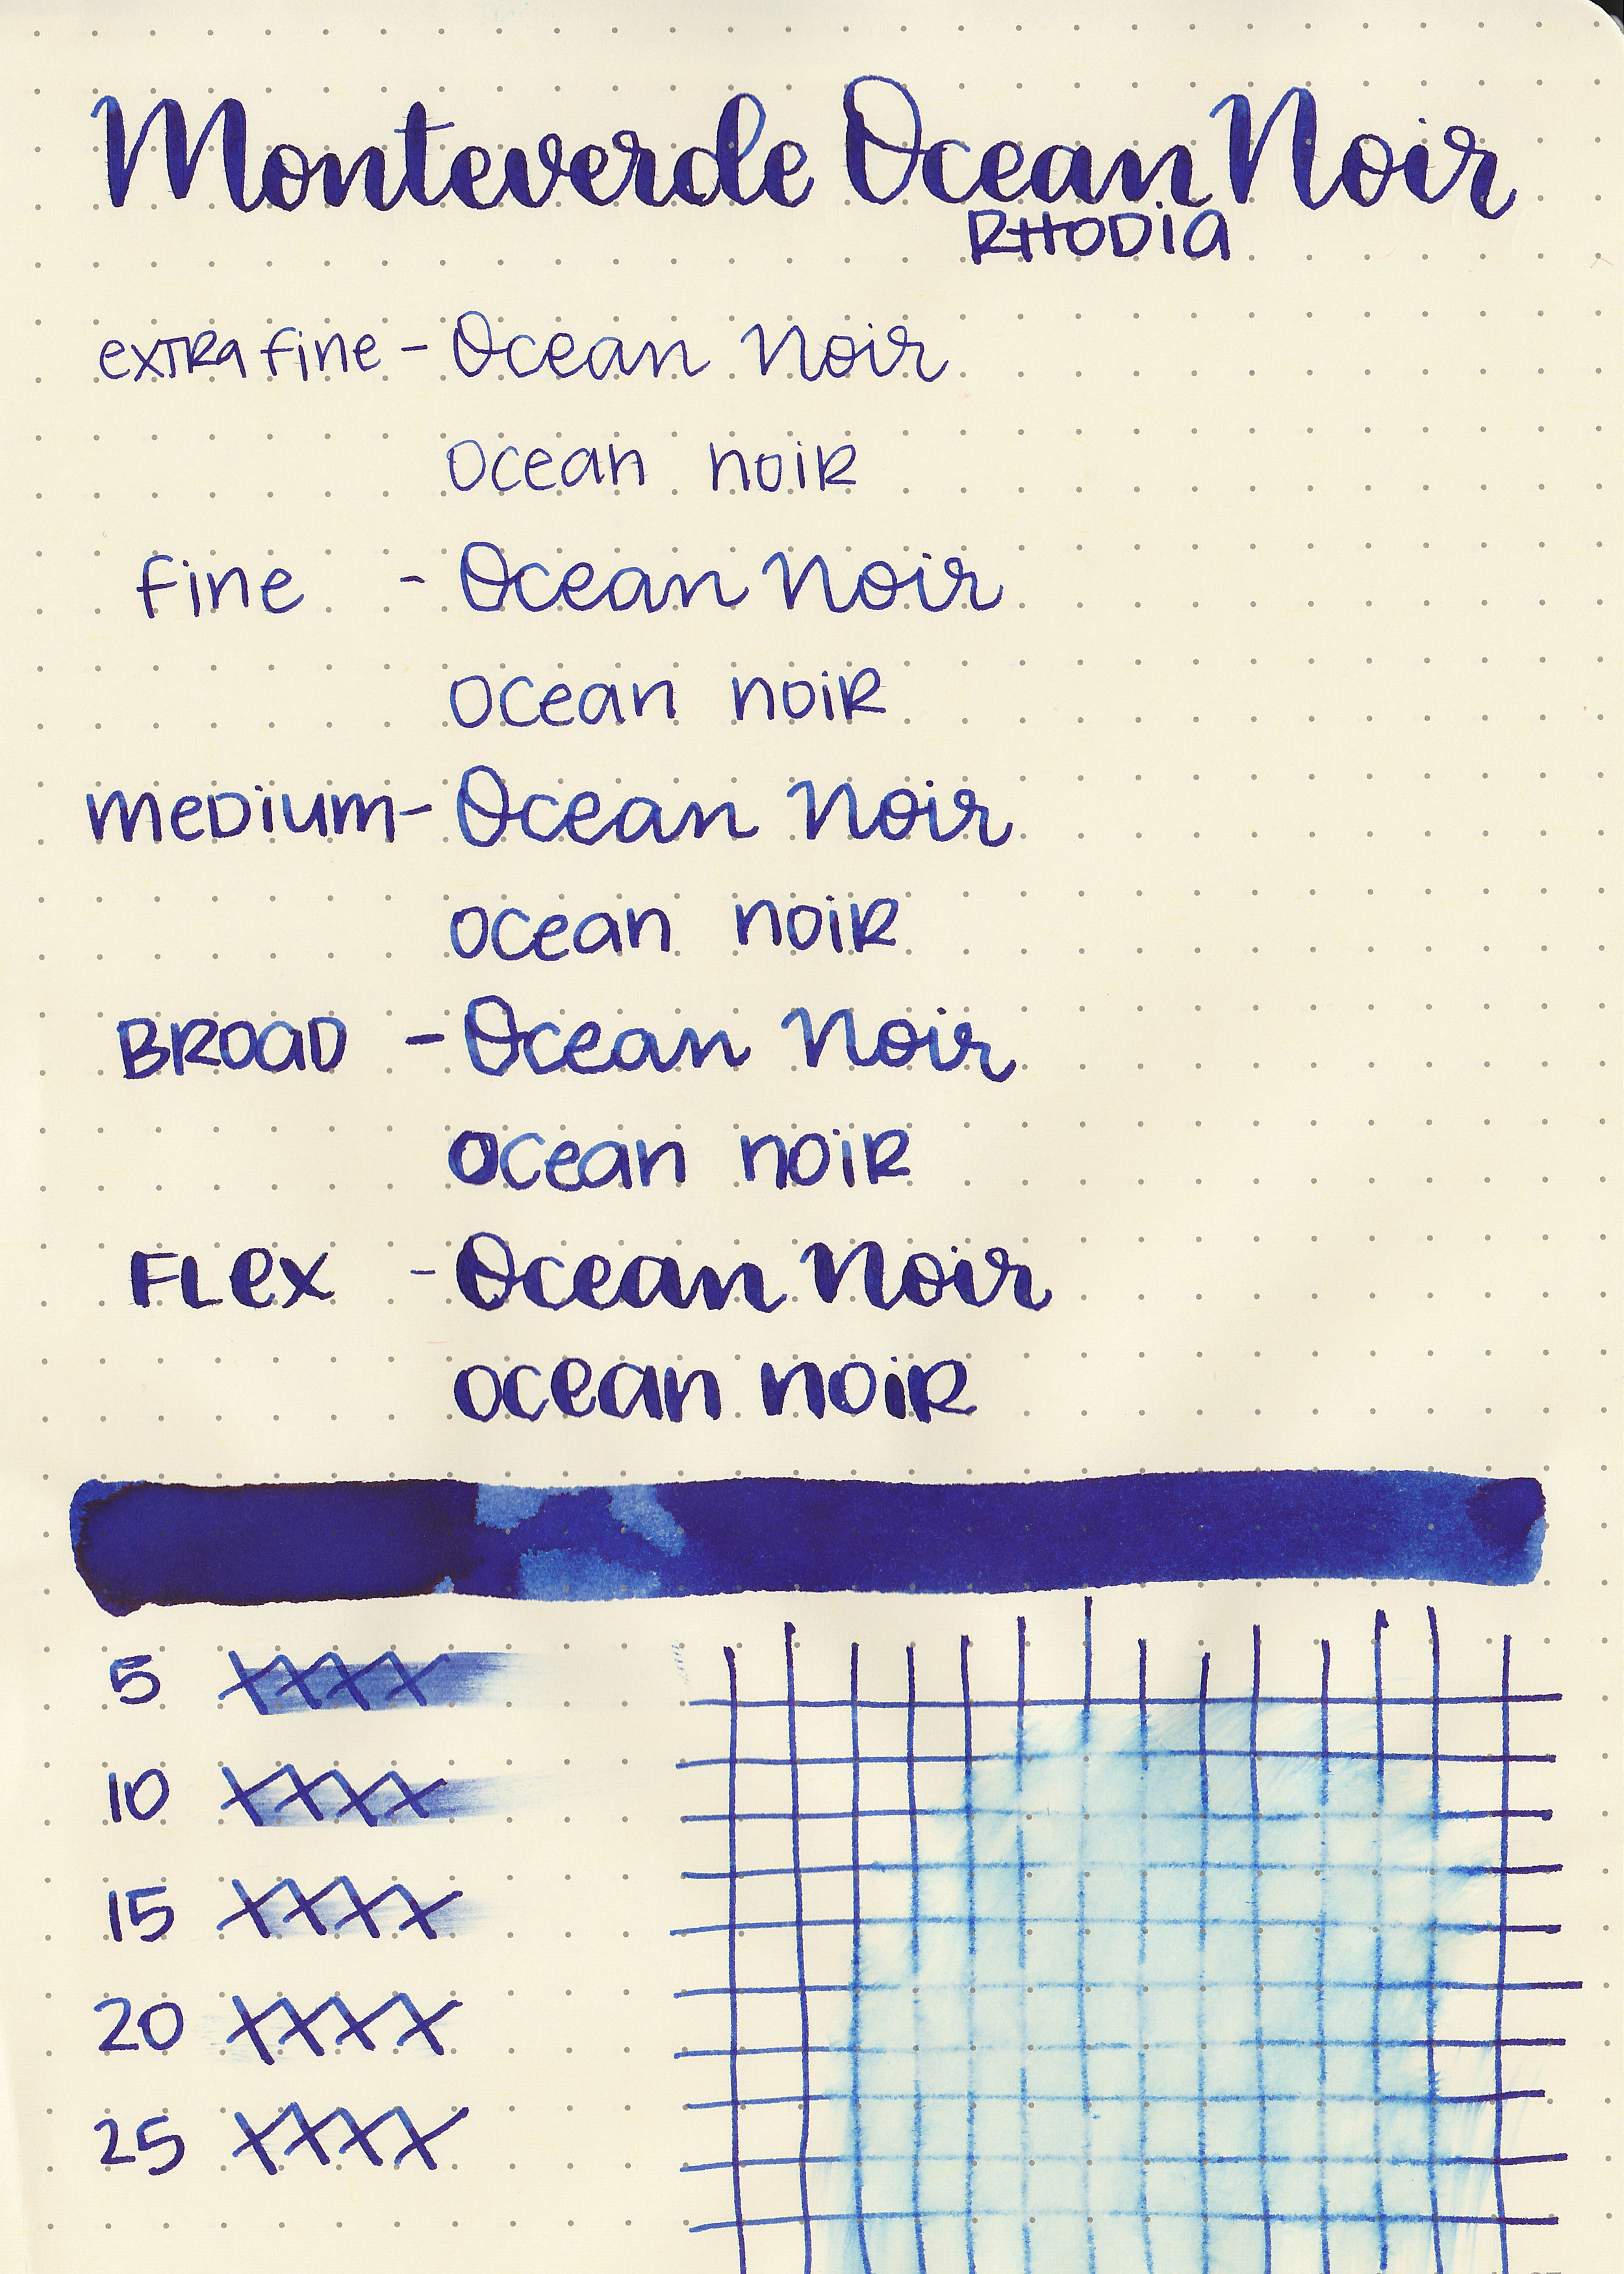 Monteverde Ocean Noir
RHODIA
extra fine - Ocean Noir
ocean noir
fine - Ocean Noir
ocean noir
medium - Ocean Noir
ocean noir
BROAD - Ocean Noir
ocean noir
FLEX - Ocean Noir
ocean noir
5 XXXX
10 XXXX
15 XXXX
20 XXXX
25 XXXX